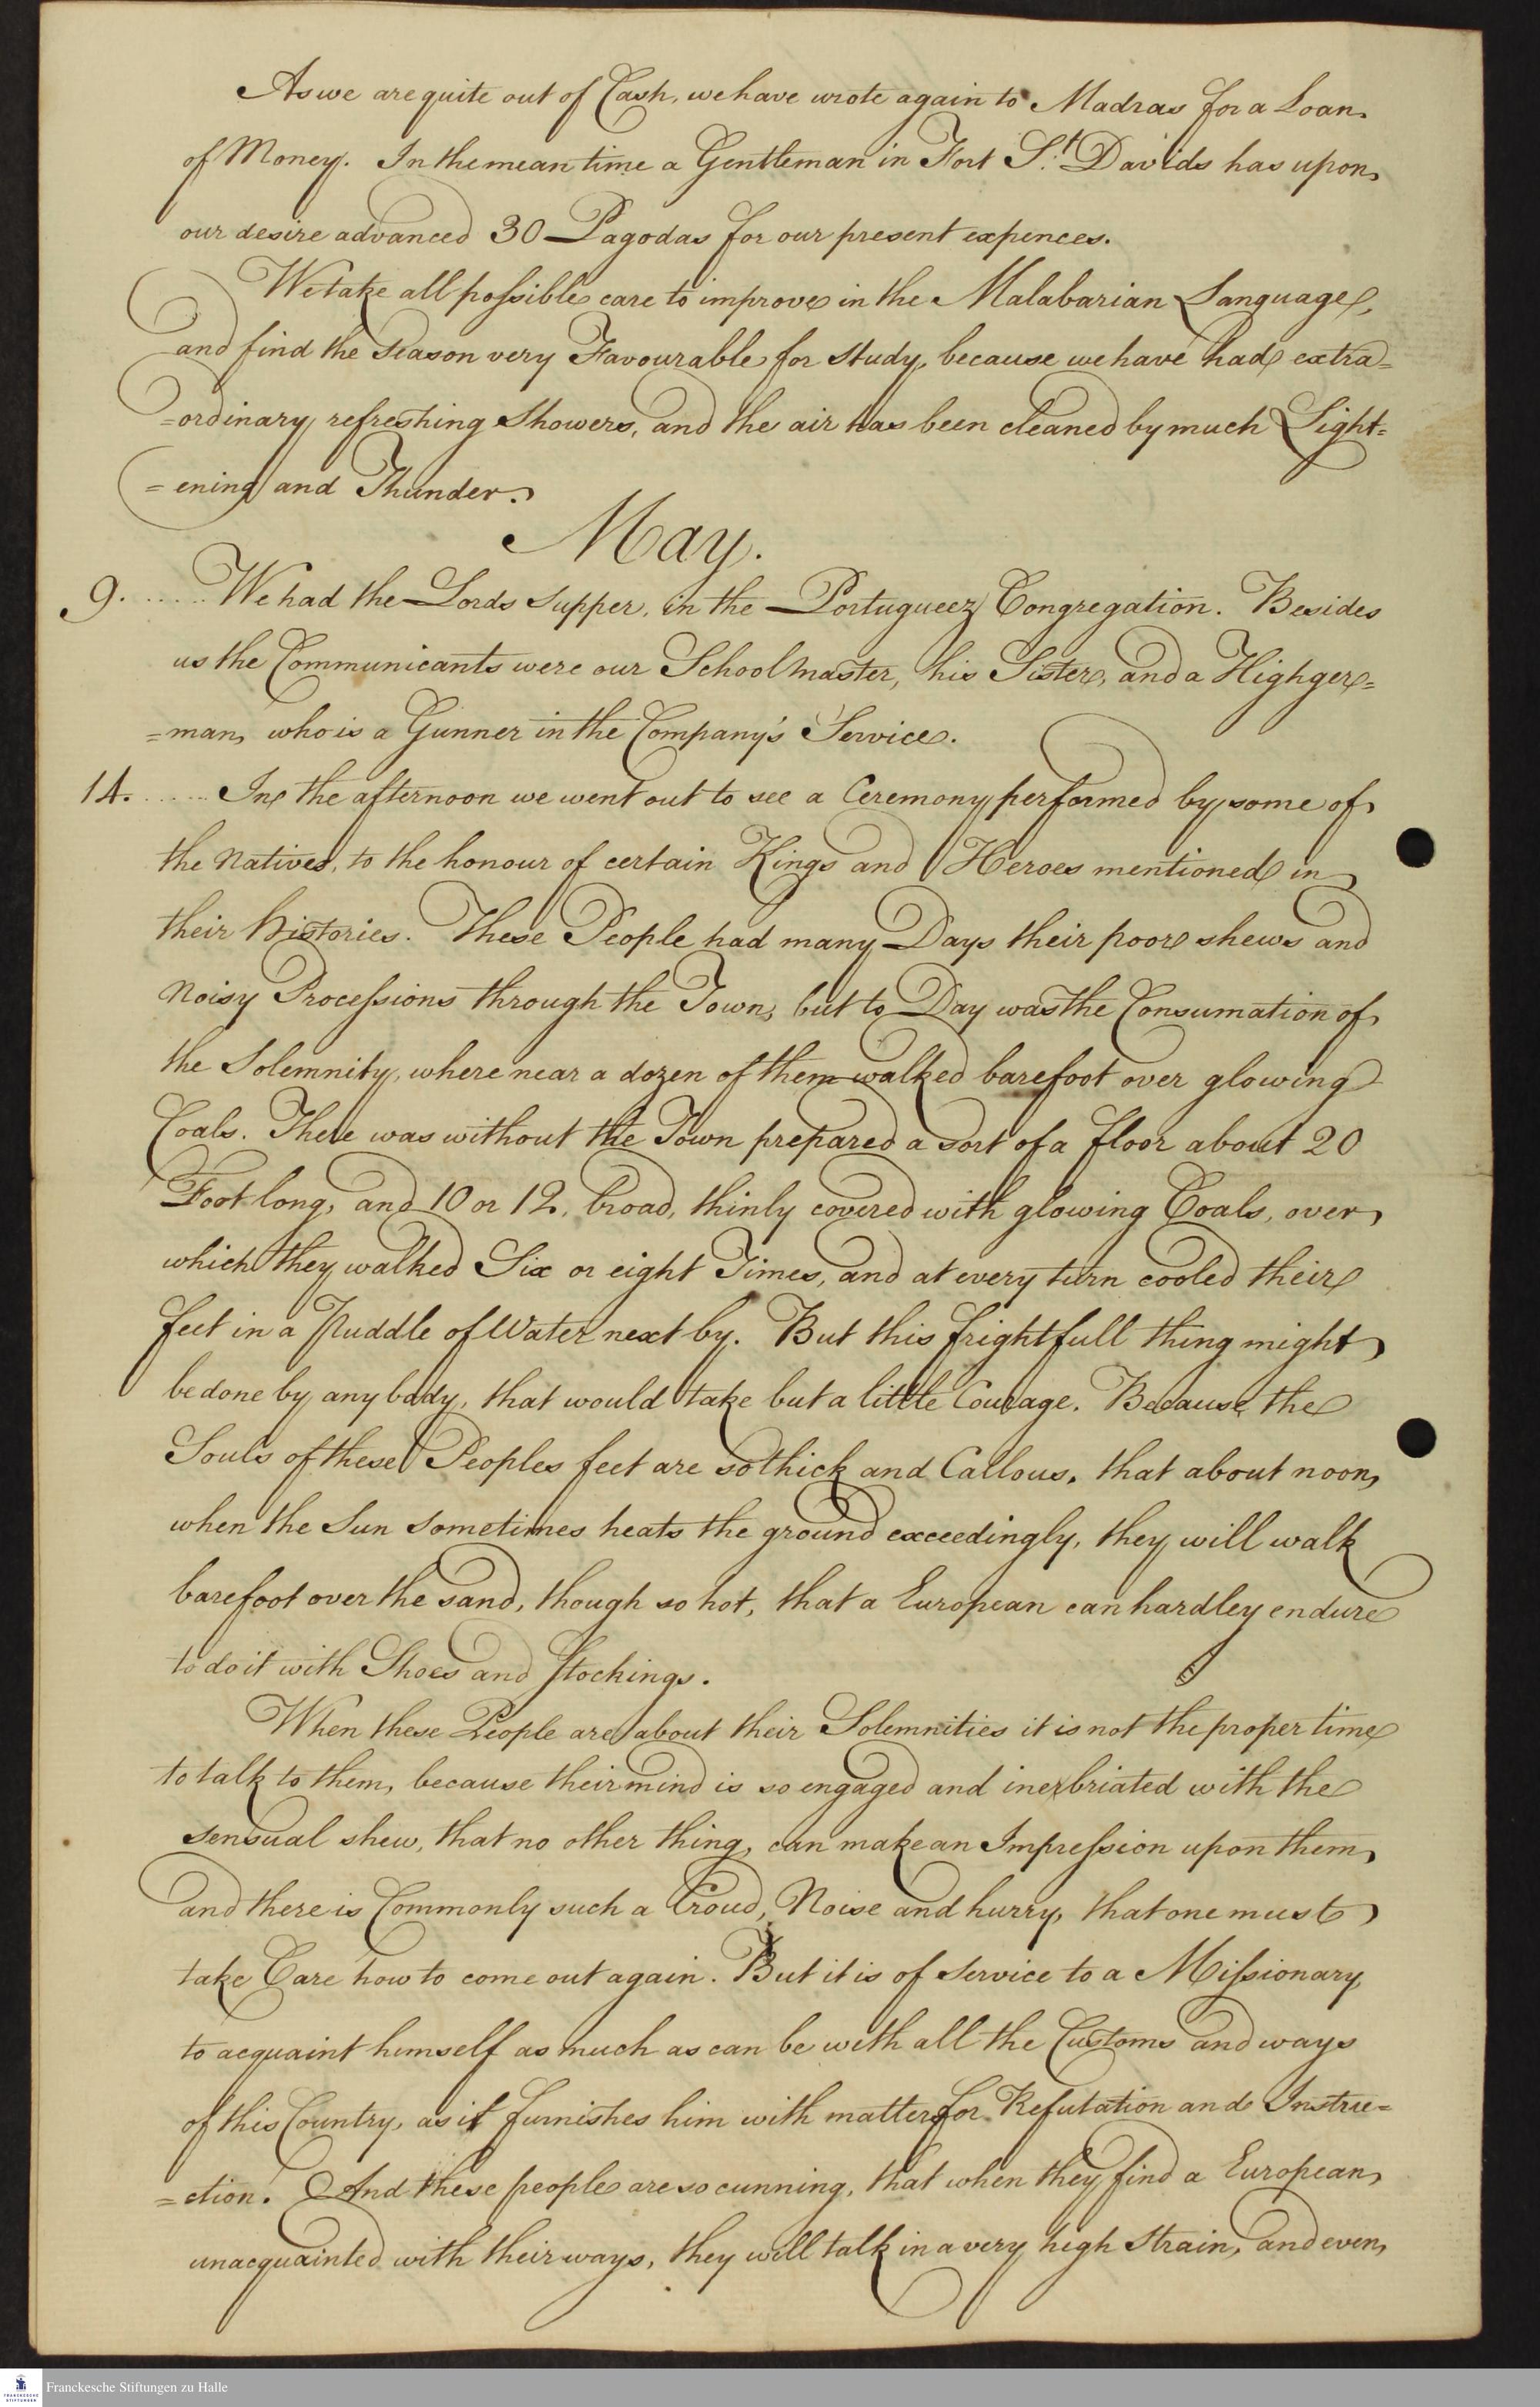 As we are quite out of Cash, we have wrote again to Madras for a Loan
of Money. In the mean time a Gentleman in Fort St. Davids has upon
our desire advanced 30 Pagodas for our present expences.
We take all possible care to improve in the Malabarian Language,
and find the Season very Favourable for study, because we have had extra=
=ordinary refreshing Showers, and the air has been cleaned by much Light=
=ening and Thunder.
May.
9. ..... We had the Lords Supper, in the Portugueez Congregation. Besides
us the Communicants were our School master, his Sister, and a Highger=
=man, who is a Gunner in the Company's Service.
14. ..... In the afternoon we went out to see a Ceremony performed by some of
the Natives, to the honour of certain Kings and Heroes mentioned in
their histories. These People had many Days their poor shews and
Noisy Processions through the Town, but to Day was the Consumation of
the Solemnity, where near a dozen of them walked barefoot over glowing
Coals. There was without the Town prepared a sort of a floor about 20
Foot long, and 10 or 12. broad, thinly covered with glowing Coals, over
which they walked Six or eight Times, and at every turn cooled their
feet in a Puddle of Water next by. But this frightfull thing might
be done by any body, that would take but a little Courage. Because the
Souls of these Peoples feet are so thick and Callous, that about noon,
when the Sun sometimes heats the ground exceedingly, they will walk
barefoot over the sand, though so hot, that a European can hardley endure
to do it with Shoes and Stockings.
When these People are about their Solemnities it is not the proper time
to talk to them, because their mind is so engaged and inebriated with the
sensual shew, that no other thing, can make an Impression upon them,
and there is Commonly such a Croud, Noise and hurry, that one must
take Care how to come out again. But it is of Service to a Missionary
to acquaint himself as much as can be with all the Customs and ways
of this Country, as it furnishes him with matter for Refutation and Instru=
=ction. And these people are so cunning, that when they find a European,
unacquainted with their ways, they will talk in a very high Strain, and even,
Franckesche Stiftungen zu Halle